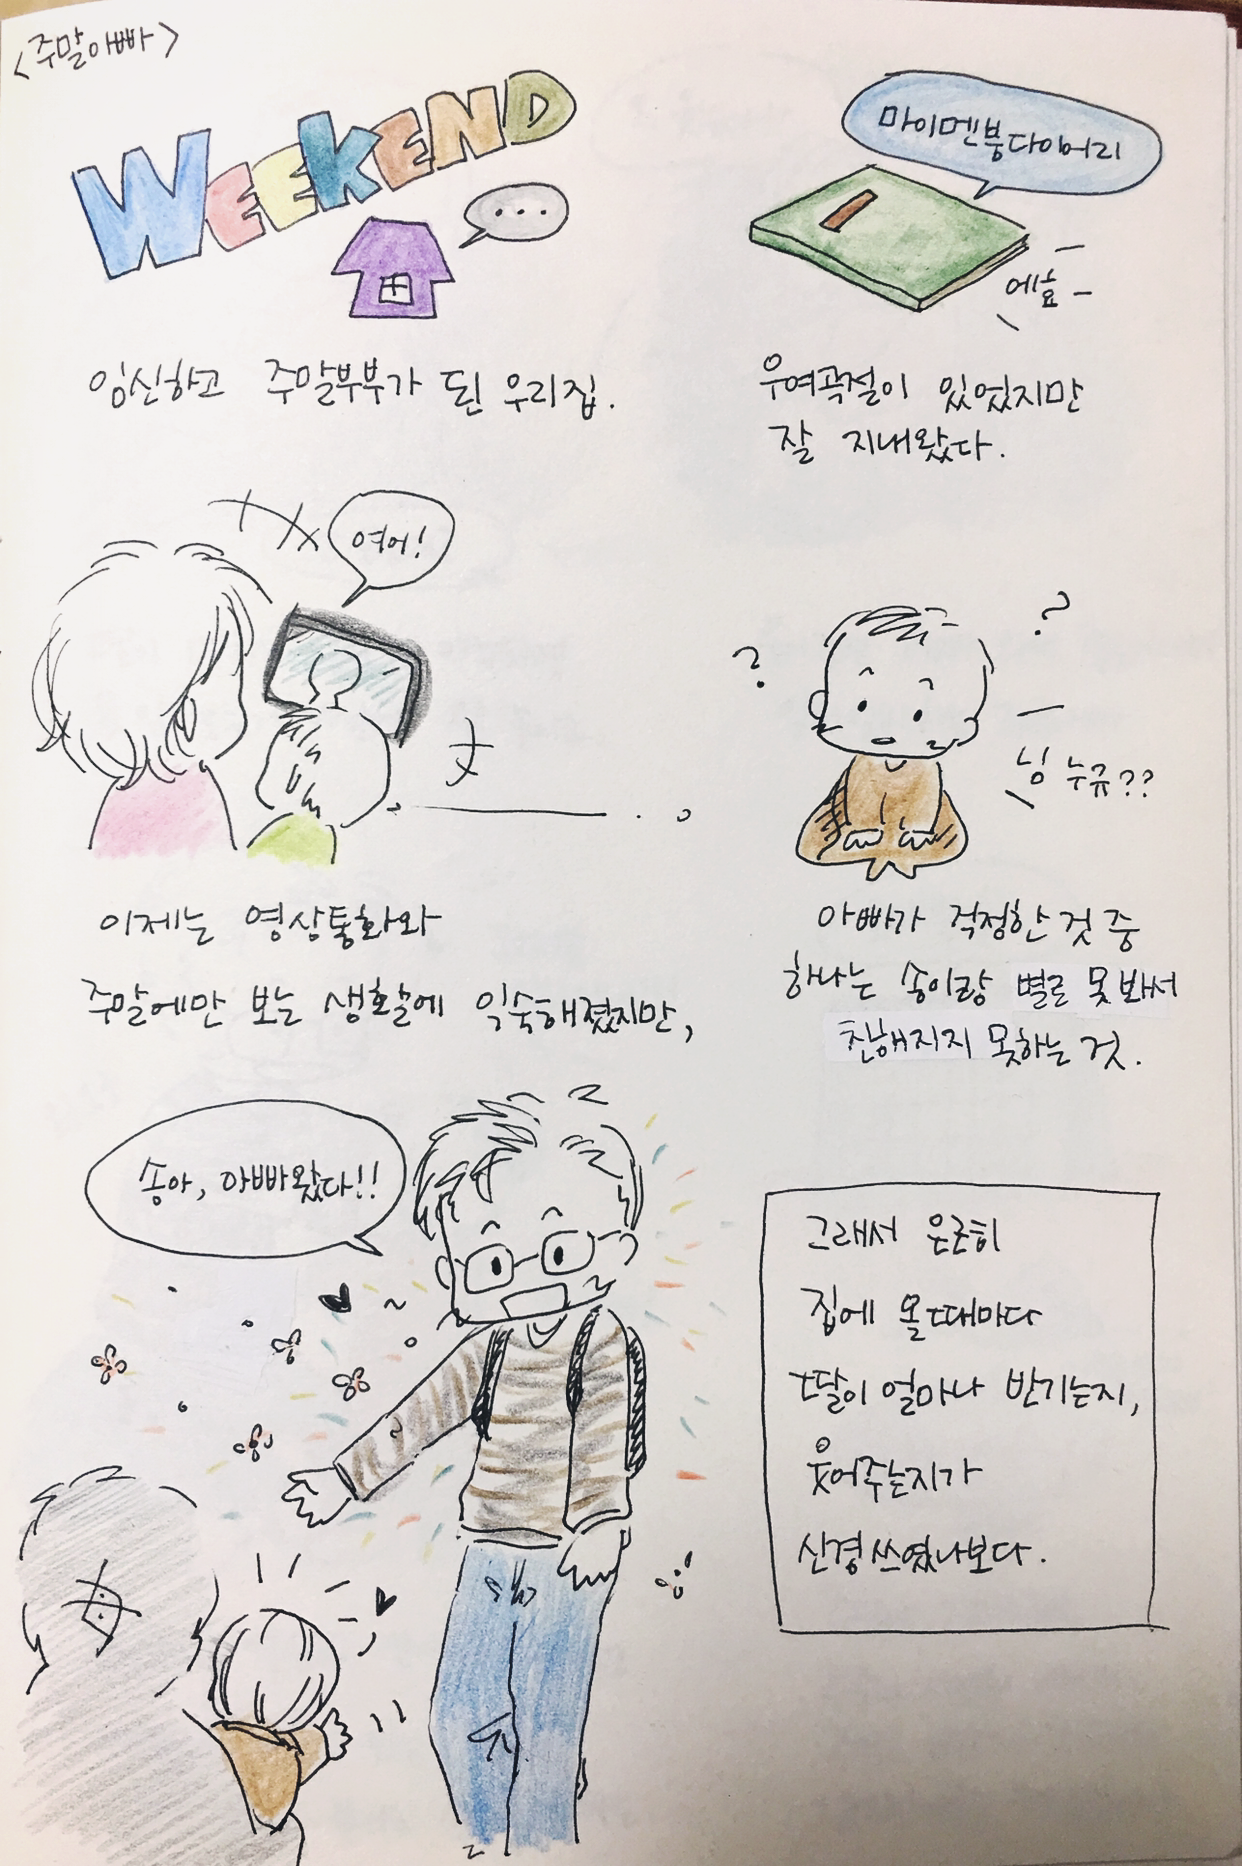 <주말아빠>
WEEKEND
...
임신하고 주말부부가 된 우리집.
마이멘붕다이어리
에휴
우여곡절이 있었지만
잘 지내왔다.
여어!
이제는 영상통화와
주말에만 보는 생활에 익숙해졌지만,
?
?
닝 누규??
아빠가 걱정한 것 중
하나는 송이랑 별로 못 봐서
친해지지 못하는 것.
송아, 아빠왔다!!
그래서 은근히
집에 올때마다
딸이 얼마나 반기는지,
웃어주는지가
신경쓰였나보다.